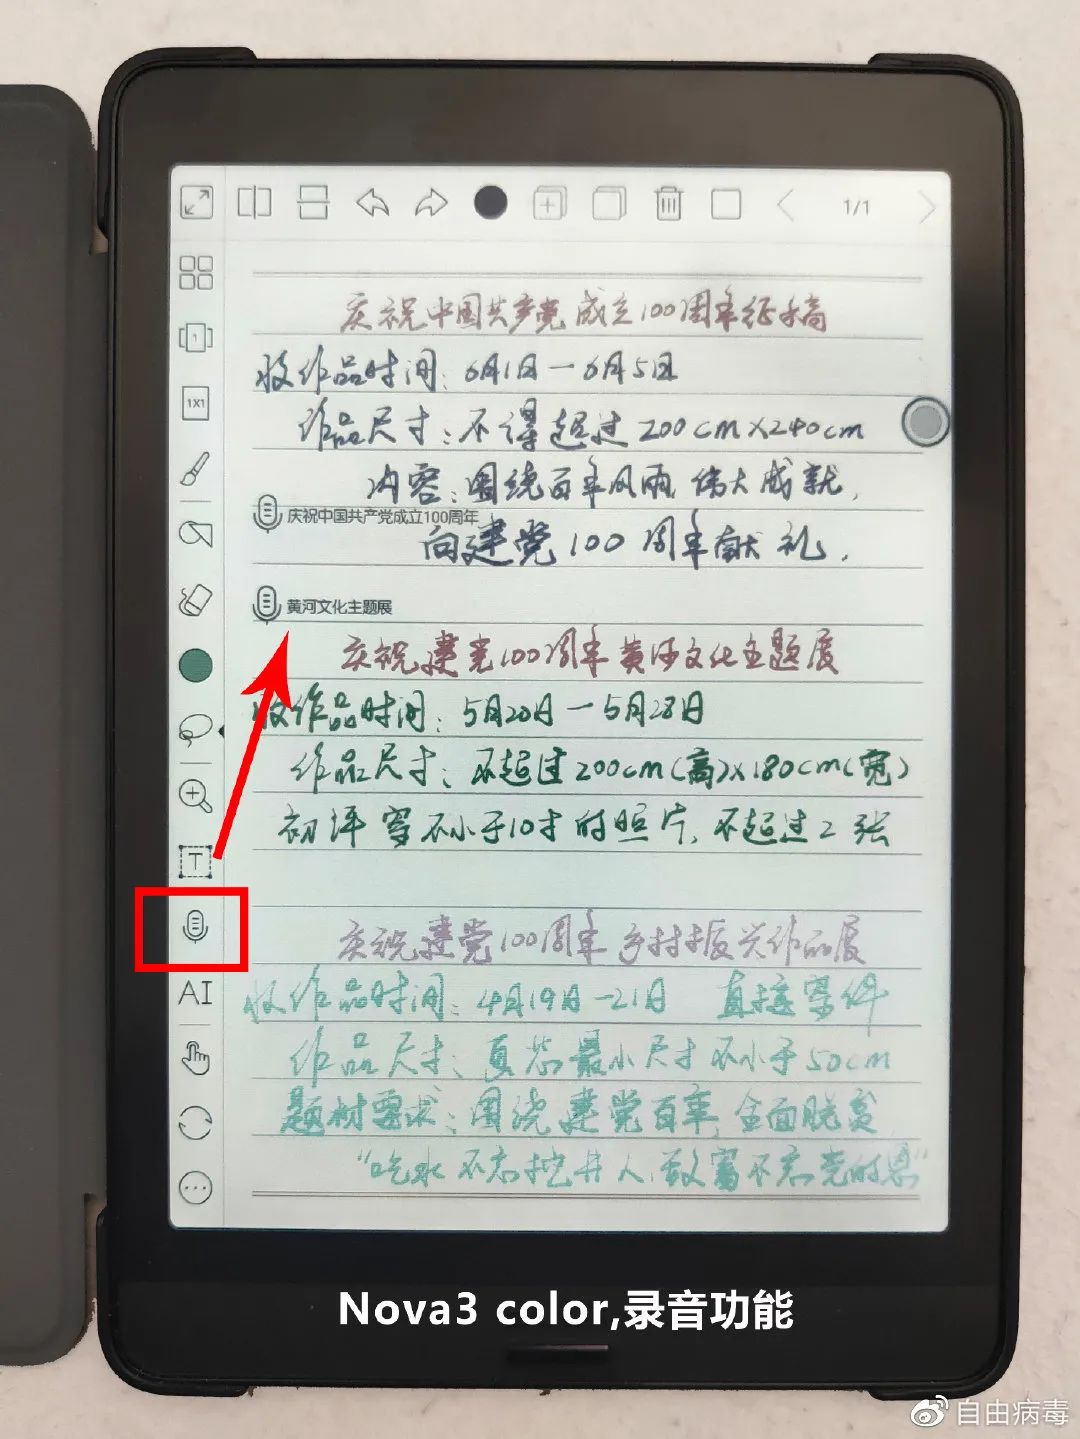 1/1
1
1X1
庆祝中国共产党成立100周年征稿
收作品时间:6月1日—6月5日
作品尺寸:不得超过200cm×240cm
内容:围绕百年风雨伟大成就,
庆祝中国共产党成立100周年
向建党100周年献礼.
黄河文化主题展
庆祝建党100周年黄河文化主题展
收作品时间:5月20日—5月28日
作品尺寸:不超过200cm(高)×180cm(宽)
初评寄不小于10寸的照片,不超过2张
T
庆祝建党100周年乡村振兴作品展
收作品时间:4月19日—21日 直接寄件
AI
作品尺寸:画芯最小尺寸不小于50cm
题材要求:围绕建党百年,全面脱贫
“吃水不忘挖井人,致富不忘党的恩”
Nova3 color,录音功能
自由病毒